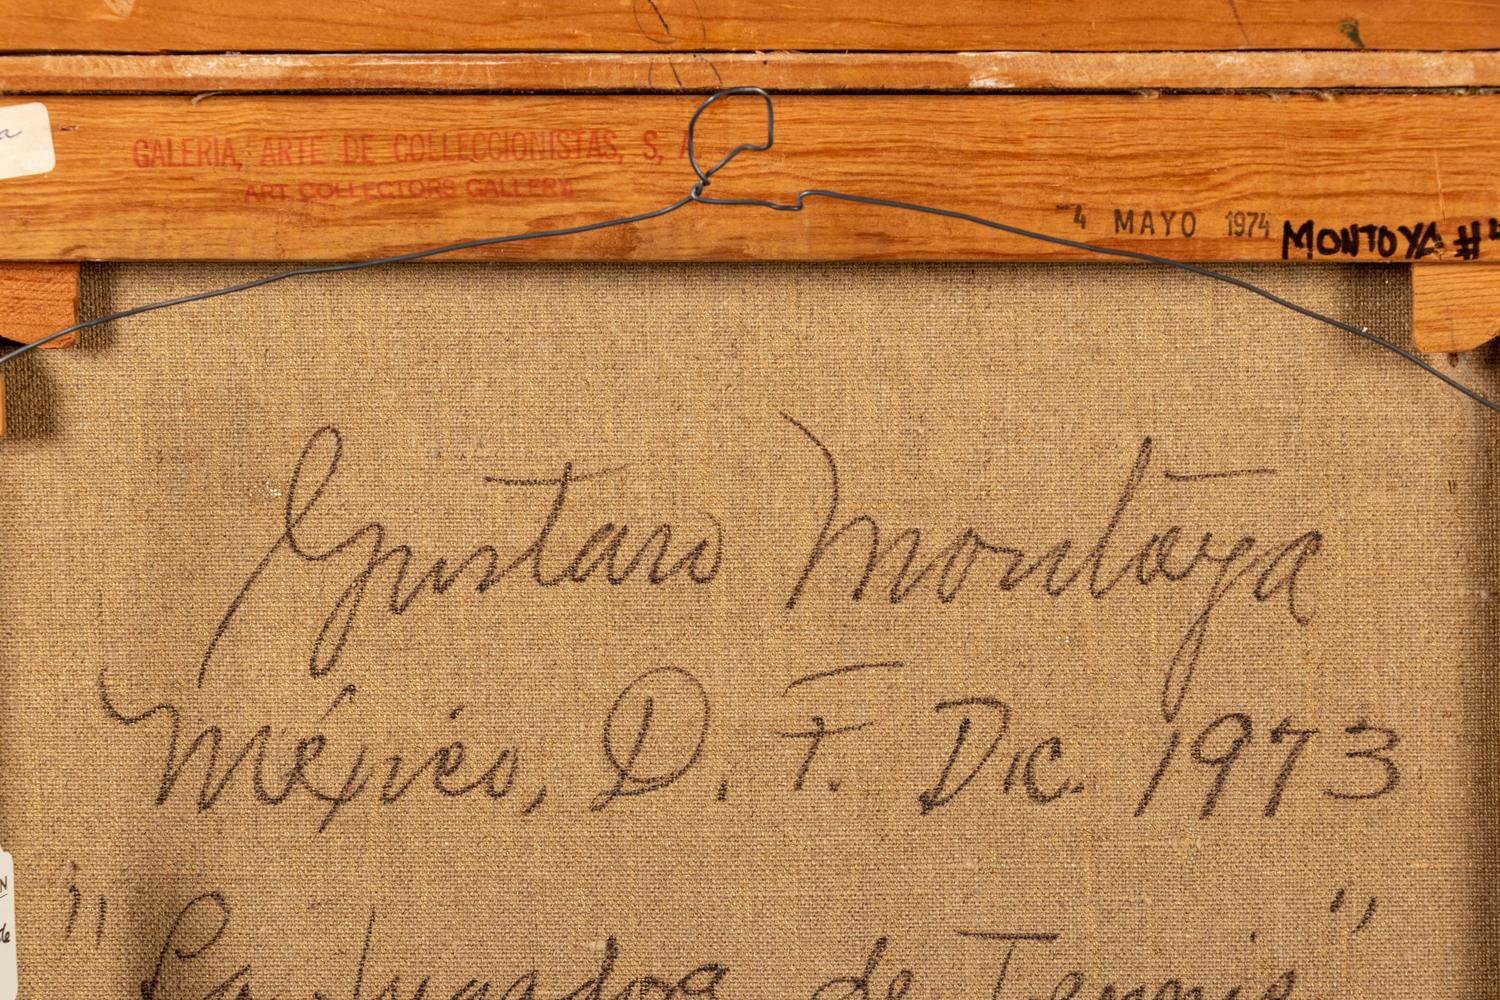 GALERIA, ARTE DE COLLECCIONISTAS, S, A
ART COLLECTORS GALLERY
-4 MAYO 1974 MONTOYA #
Gustavo Montoya
México, D. F. Dic. 1973
"La Jugadora de Tennis"